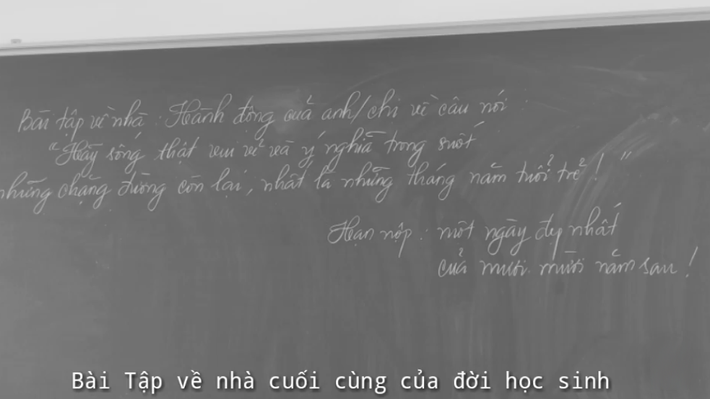 Bài tập về nhà: Hành động của anh/chị về câu nói:
"Hãy sống thật vui vẻ và ý nghĩa trong suốt
những chặng đường còn lại, nhất là những tháng năm tuổi trẻ!"
Hạn nộp: một ngày đẹp nhất
của mười mười năm sau!
Bài Tập về nhà cuối cùng của đời học sinh